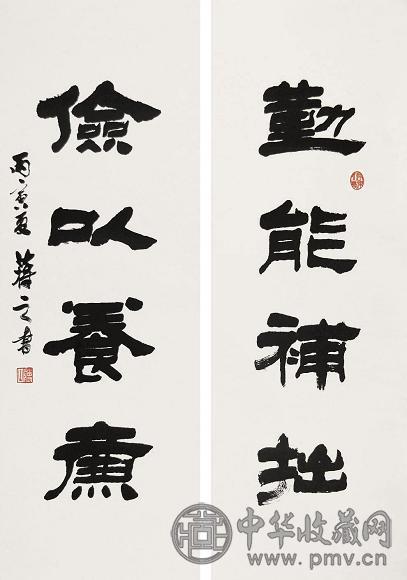 勤能補拙
儉以養廉
丙寅夏 之書
中华收藏网
www.pmv.cn